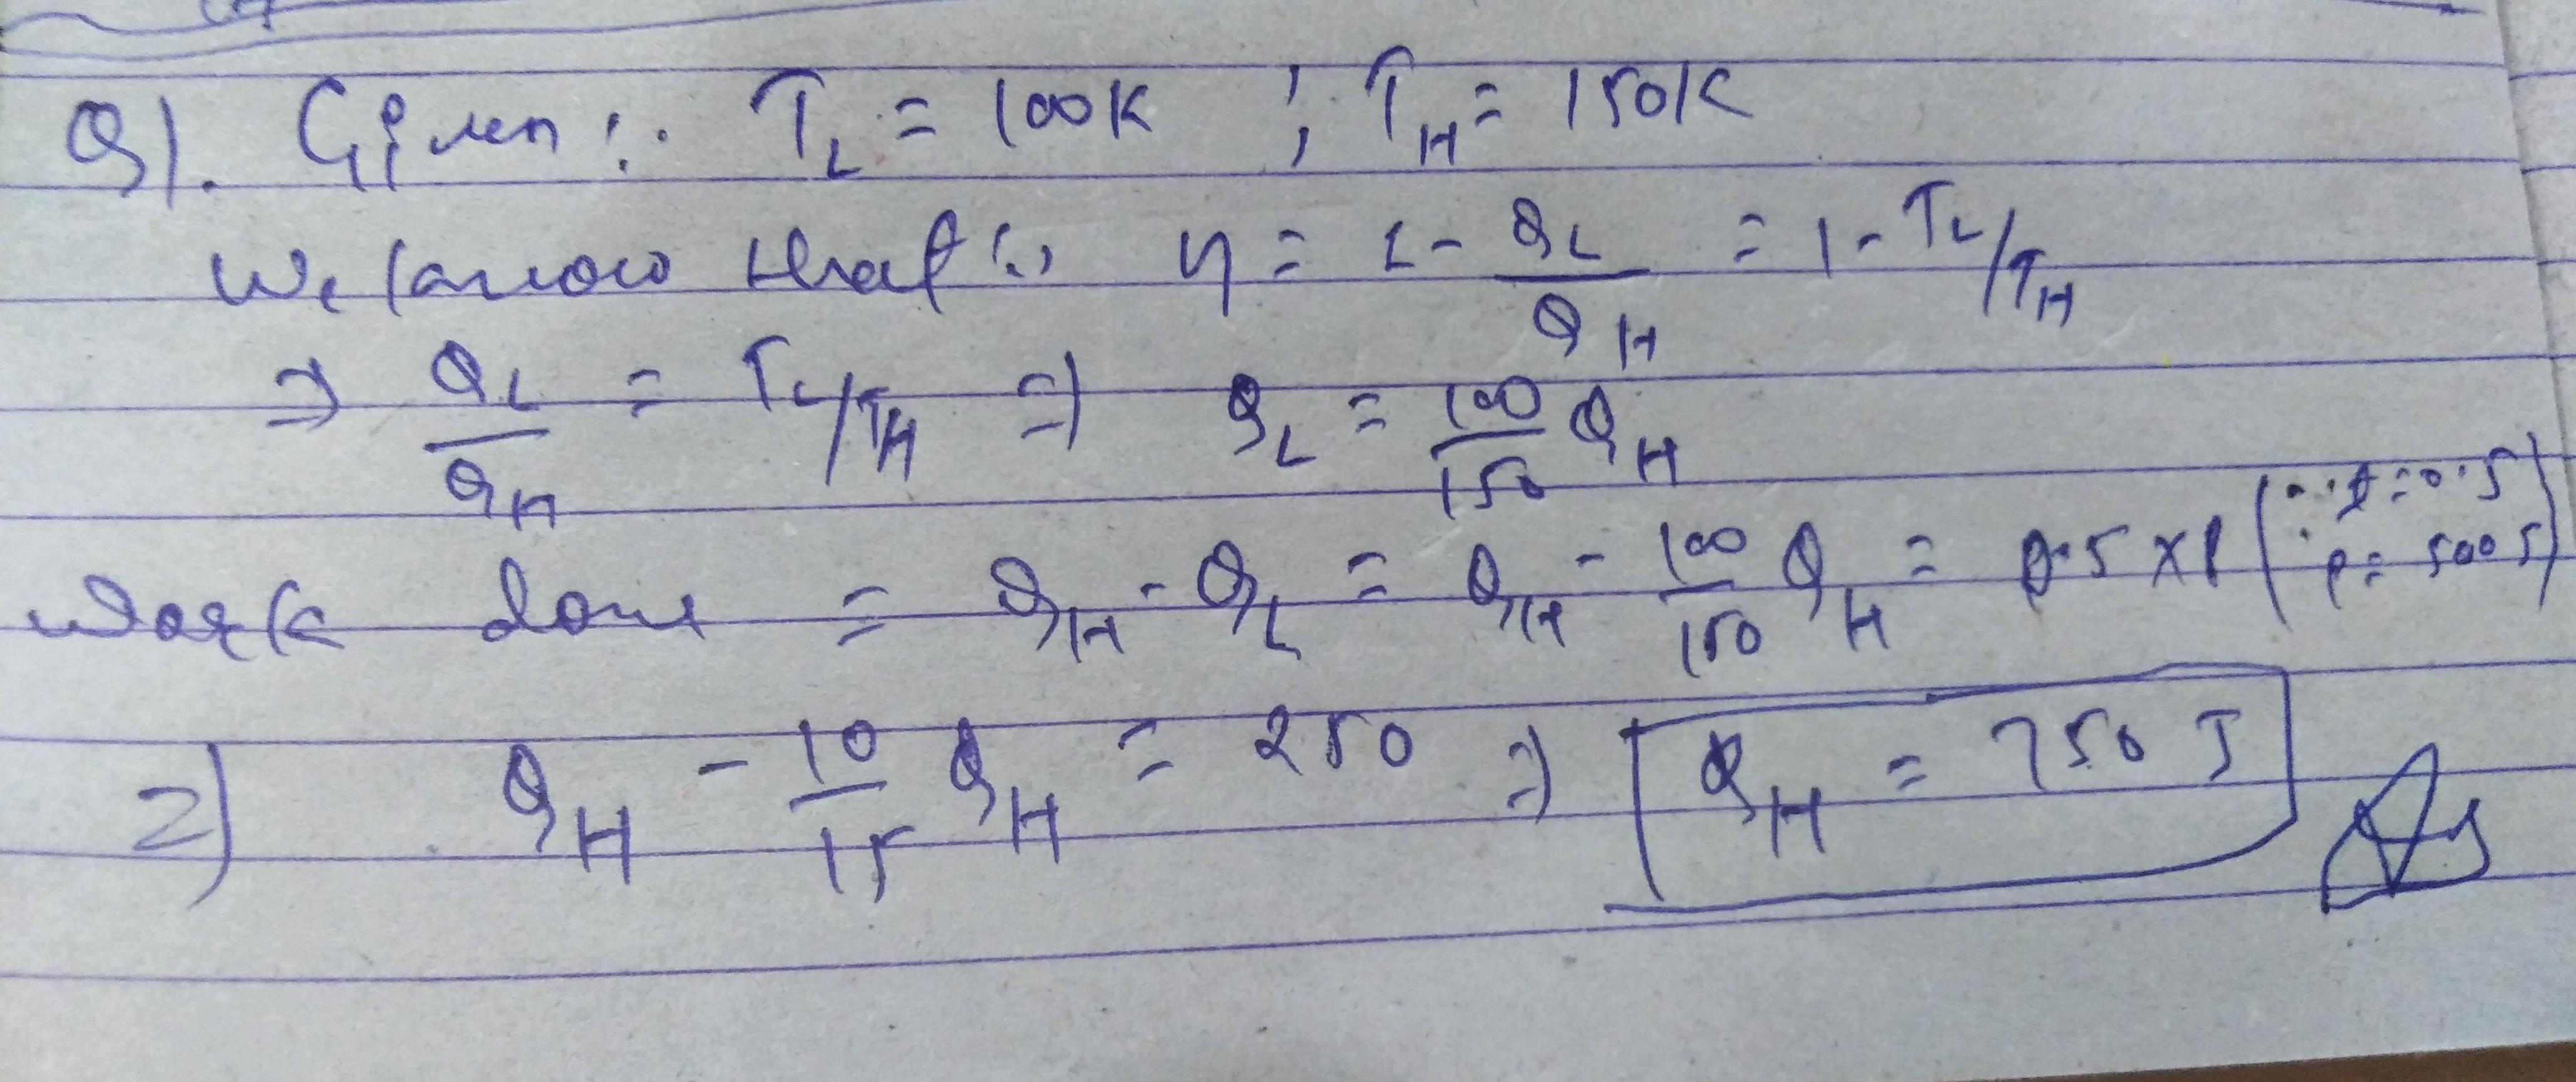 Q1. Given :- T_L = 100K ; T_H = 150K
We know that :, η = 1 - Q_L/Q_H = 1 - T_L/T_H
⇒ Q_L/Q_H = T_L/T_H ⇒ Q_L = 100/150 Q_H
Work done = Q_H - Q_L = Q_H - 100/150 Q_H = 0.5 × P (∵ = 0.5 P = 500 J)
⇒ Q_H - 10/15 Q_H = 250 ⇒ Q_H = 750 J Ans